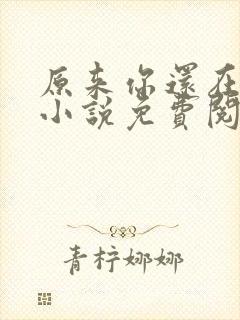 原来你還在
小說免費閱
青柠娜娜